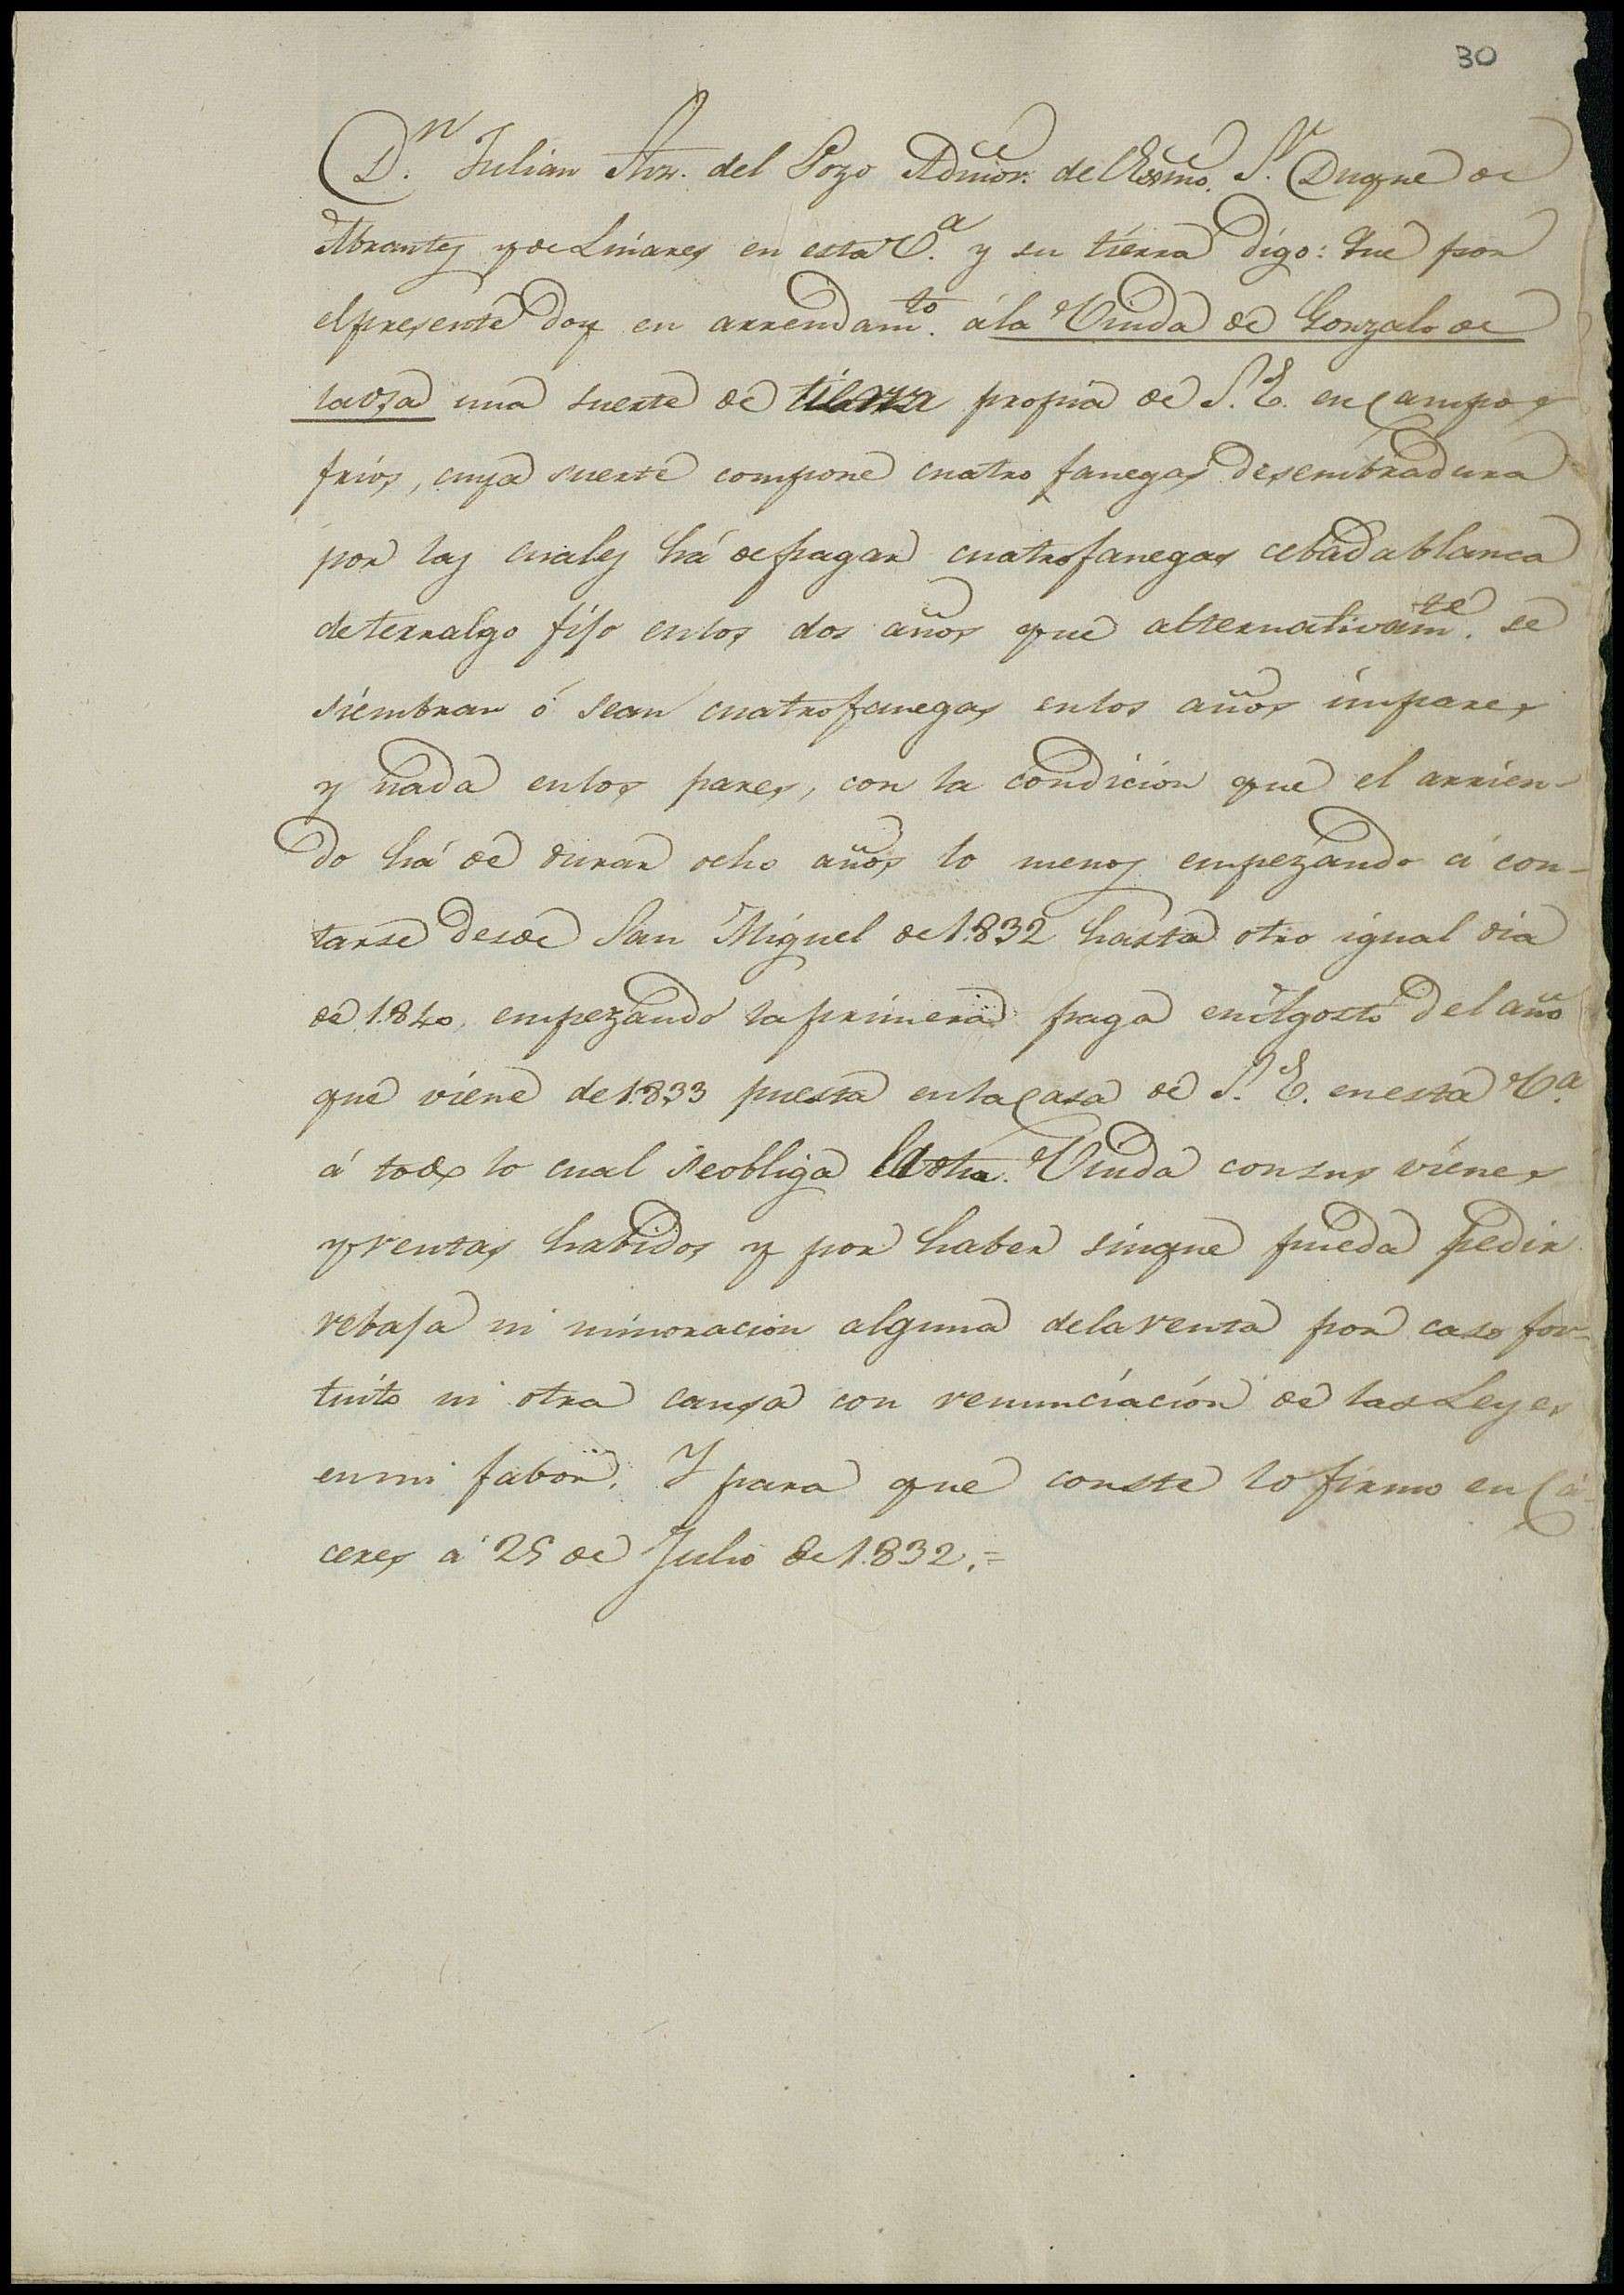 30
D.n Julian Alvz. del Pozo Admor. del Exsmo. S.r Duque de
Abrantes y de Linares en esta V.a y su tierra digo: Que por
el presente doy en arrendam.to á la Viuda de Gonzalo de
una suerte de tierra propia de S. E. en Campos
frios, cuya suerte compone cuatro fanegas de sembradura
por las cuales há de pagar cuatro fanegas cebada blanca
de terralgo fijo en los dos años que alternativam.te se
siembran ó sean cuatro fanegas en los años impares
y nada en los pares, con la condicion que el arrien-
do há de durar ocho años lo menos empezando á con-
tarse desde San Miguel de 1.832 hasta otro igual dia
de 1.840, empezando la primera paga en Agosto del año
que viene de 1.833 puesta en la Casa de S. E. en esta V.a
á todo lo cual se obliga la dha. Viuda con sus vienes
y rentas habidos y por haber sin que pueda pedir
rebaja ni minoracion alguna de la renta por caso for-
tuito ni otra causa con renunciación de las Leyes
en mi fabor. Y para que conste lo firmo en Cá-
ceres á 25 de Julio de 1.832.=